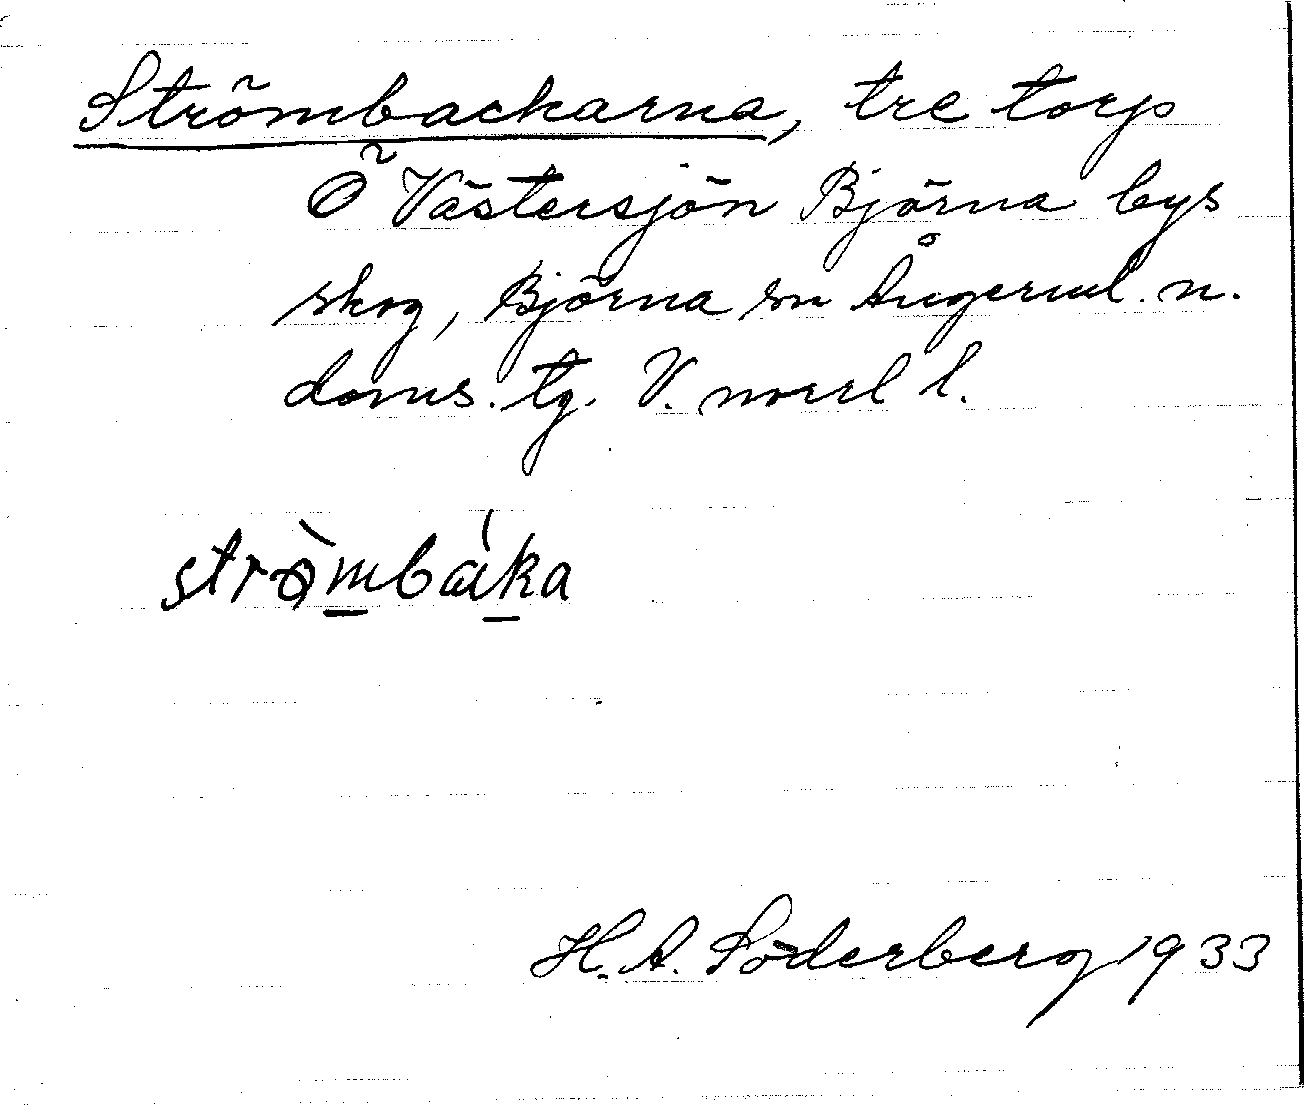 Strömbackarna, tre torp
Ö Västersjön Björna bys
skog, Björna sn Ångerml. n.
doms. tg. V. norrl l.
strö̀mbáka
H. A. Söderberg 1933